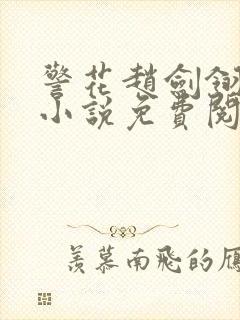 警花趙劍鈤
小說免費閱
羨慕南飛的雁